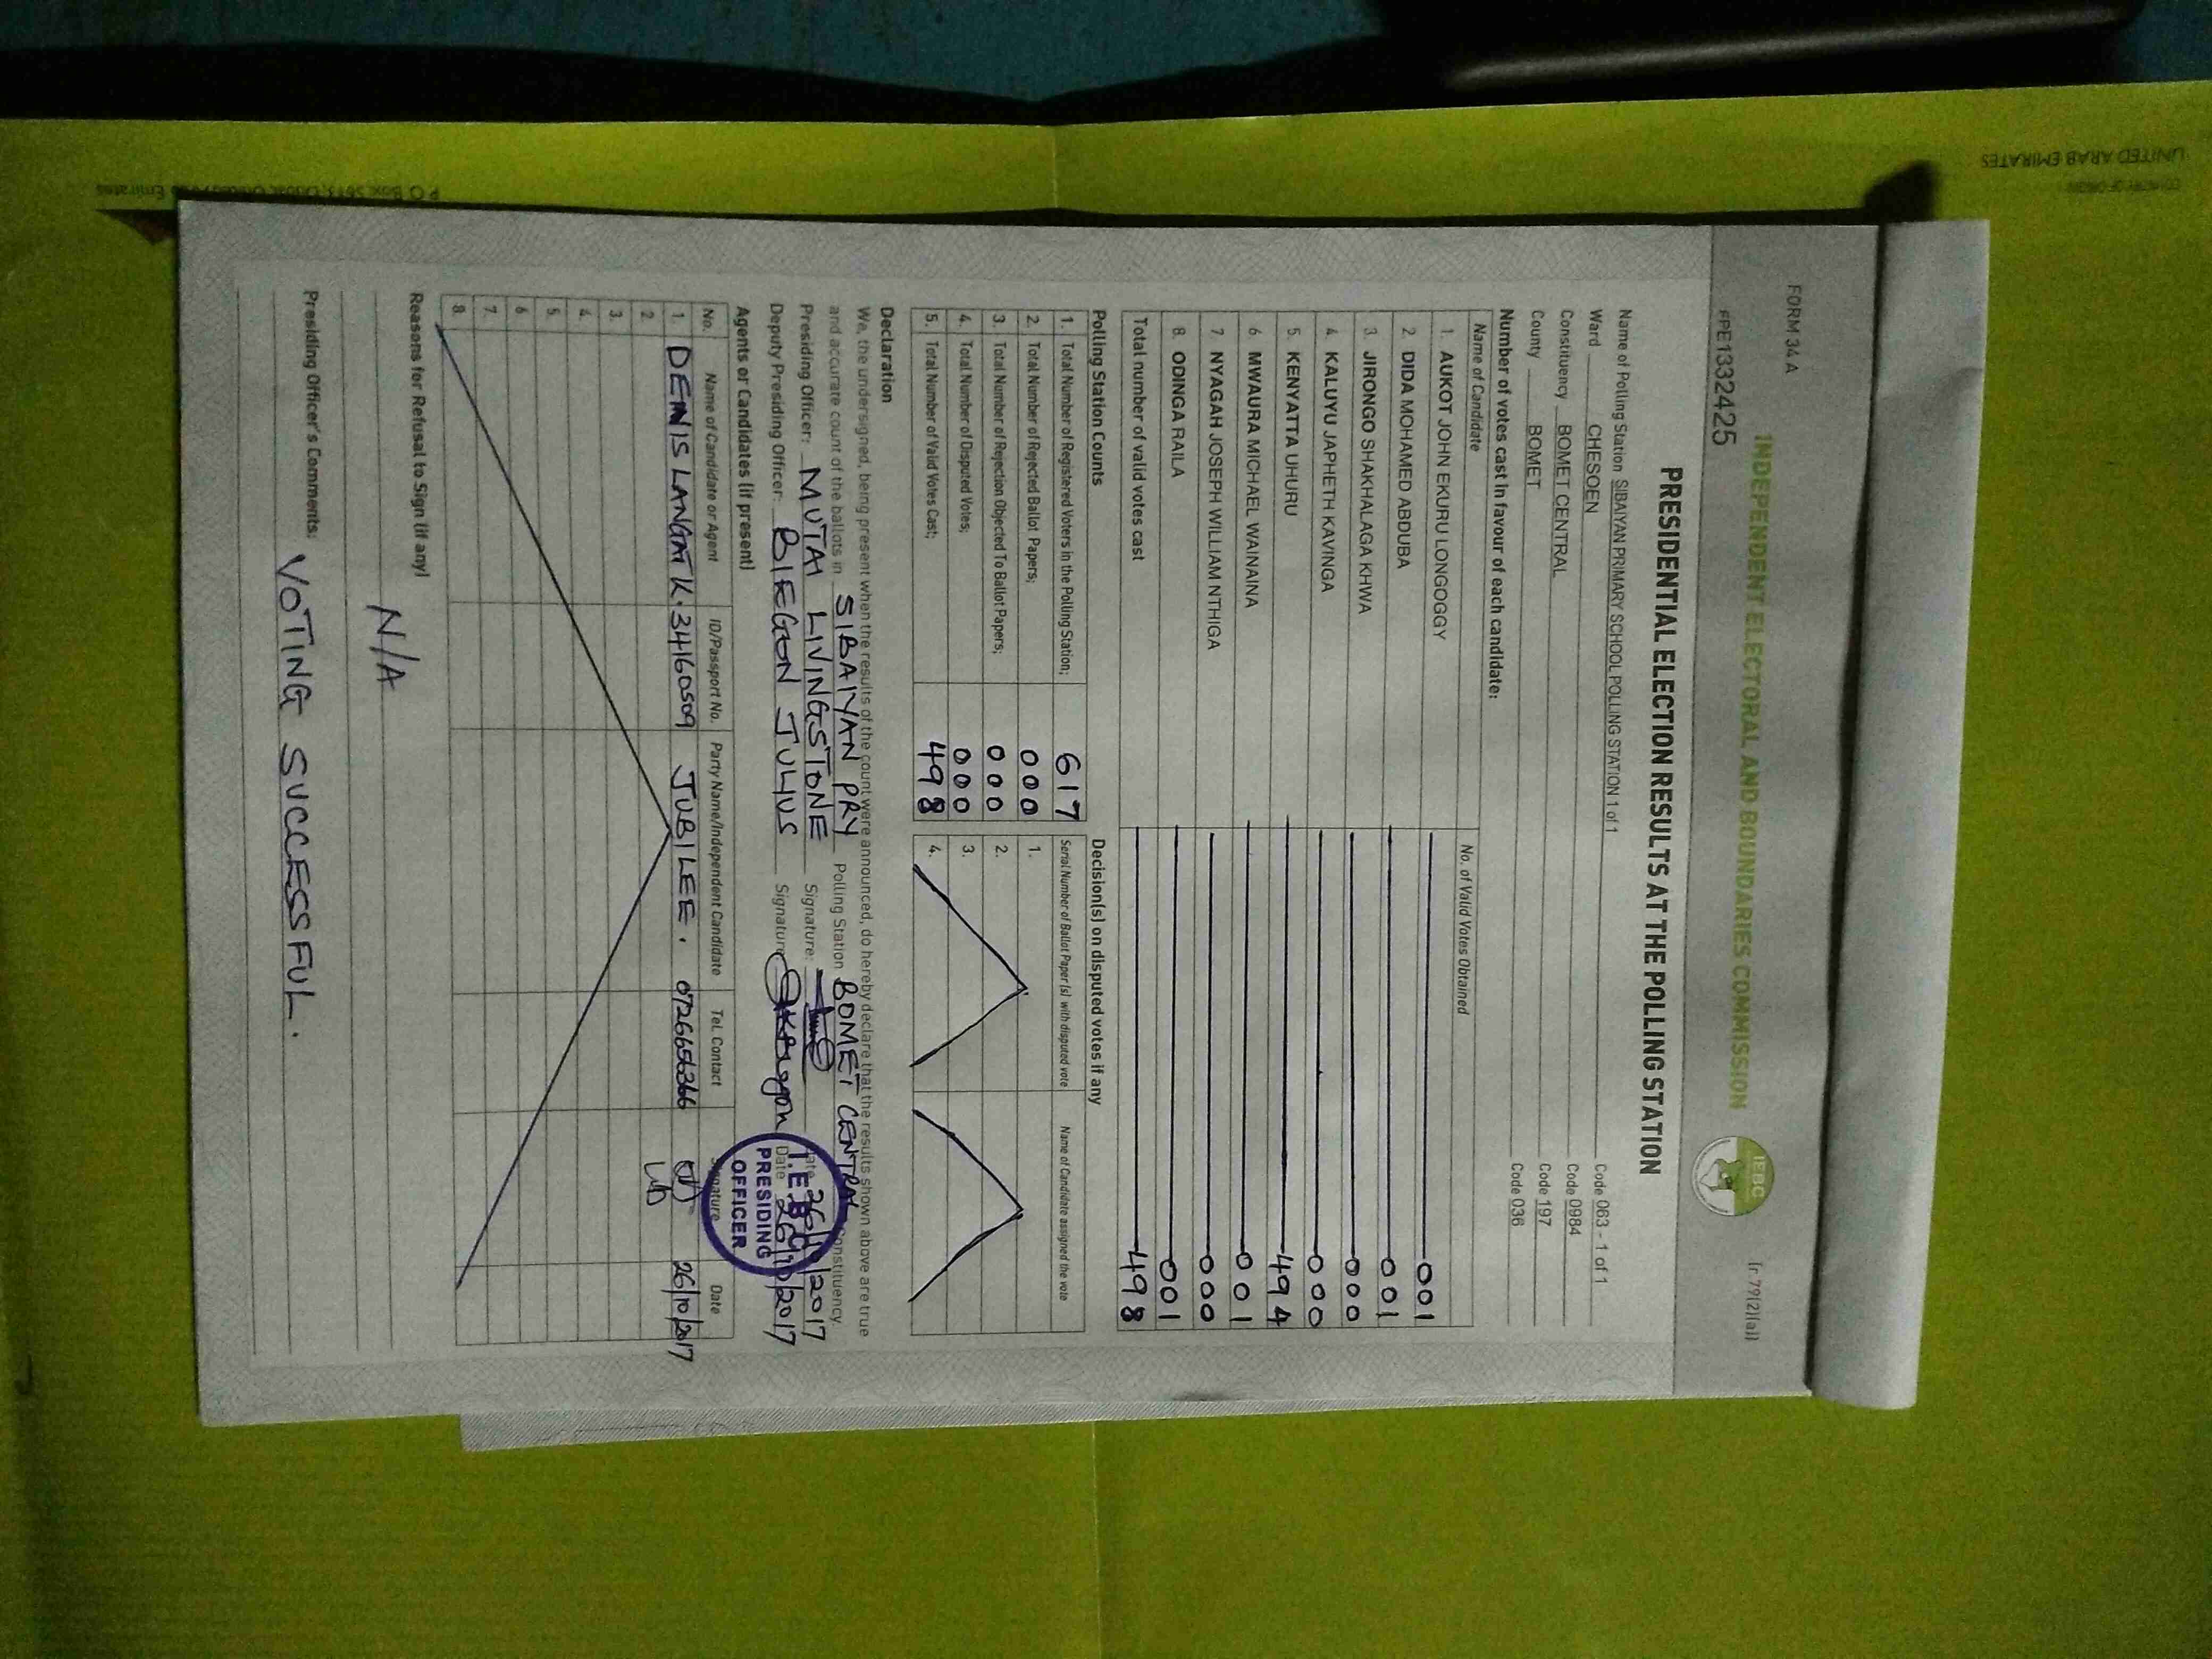 FORM 34 A
[r 79(2)(a)]
INDEPENDENT ELECTORAL AND BOUNDARIES COMMISSION
IEBC
#PE1332425
PRESIDENTIAL ELECTION RESULTS AT THE POLLING STATION
Name of Polling Station SIBAIYAN PRIMARY SCHOOL POLLING STATION 1 of 1 Code 063 - 1 of 1
Ward CHESOEN Code 0984
Constituency BOMET CENTRAL Code 197
County BOMET Code 036
Number of votes cast in favour of each candidate:
Name of Candidate No. of Valid Votes Obtained
1. AUKOT JOHN EKURU LONGOGGY 001
2. DIDA MOHAMED ABDUBA 001
3. JIRONGO SHAKHALAGA KHWA 000
4. KALUYU JAPHETH KAVINGA 000
5. KENYATTA UHURU 494
6. MWAURA MICHAEL WAINAINA 001
7. NYAGAH JOSEPH WILLIAM NTHIGA 000
8. ODINGA RAILA 001
Total number of valid votes cast 498
Polling Station Counts Decision(s) on disputed votes if any
1. Total Number of Registered Voters in the Polling Station; 617 Serial Number of Ballot Paper(s) with disputed vote Name of Candidate assigned the vote
2. Total Number of Rejected Ballot Papers; 000 1.
3. Total Number of Rejection Objected To Ballot Papers; 000 2.
4. Total Number of Disputed Votes; 000 3.
5. Total Number of Valid Votes Cast; 498 4.
Declaration
We, the undersigned, being present when the results of the count were announced, do hereby declare that the results shown above are true
and accurate count of the ballots in SIBAIYAN PRY Polling Station BOMET CENTRAL Constituency.
Presiding Officer: MUTAI LIVINGSTONE Signature: Date 26/10/2017
Deputy Presiding Officer: BIEGON JULIUS Signature Date 26/10/2017
I.E.B.C
PRESIDING
OFFICER
Agents or Candidates (if present)
No. Name of Candidate or Agent ID/Passport No. Party Name/Independent Candidate Tel. Contact Signature Date
1. DENIS LANGAT K. 34160509 JUBILEE. 0726656366 26/10/2017
2.
3.
4.
5.
6
7.
8.
Reasons for Refusal to Sign (if any)
N/A
Presiding Officer's Comments: VOTING SUCCESSFUL.
UNITED ARAB EMIRATES